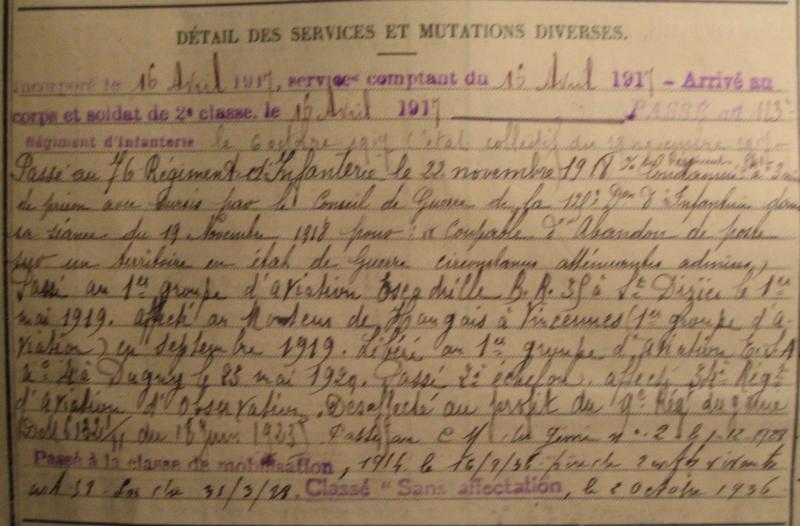 DÉTAIL DES SERVICES ET MUTATIONS DIVERSES.
Incorporé le 16 Avril 1917, services comptant du 15 Avril 1917 – Arrivé au
corps et soldat de 2e classe, le 17 Avril 1917 PASSÉ au 113e
Régiment d'Infanterie le 6 octobre 1917 (état collectif du 19 novembre 1917
Passé au 76 Régiment d'Infanterie le 22 novembre 1918 Condamné à 3
de prison avec sursis par le Conseil de Guerre de la 125e Don d'Infanterie dans
sa séance du 19 Novembre 1918 pour : "Coupable d'Abandon de poste
sur un territoire en état de Guerre circonstances atténuantes admises,
Passé au 1er groupe d'Aviation Escadrille B. R. 35 à St Dizier le 1er
mai 1919. Affecté au à Vincennes (1er groupe d'A-
viation) en septembre 1919. Libéré au 1er groupe d'Aviation
à Dugny le 23 mai 1920. Passé 2e échelon, affecté 34e Régt
d'Aviation d'Observation. Desaffecté au profit du 9e Rég. du génie
du 18 Juin 1923) Passé au C M du Génie n° 2
Passé à la classe de mobilisation, 1914 le 16/9/35 père de 2 enfants vivants
31/3/28. Classé "Sans affectation, le 2 Octobre 1936.